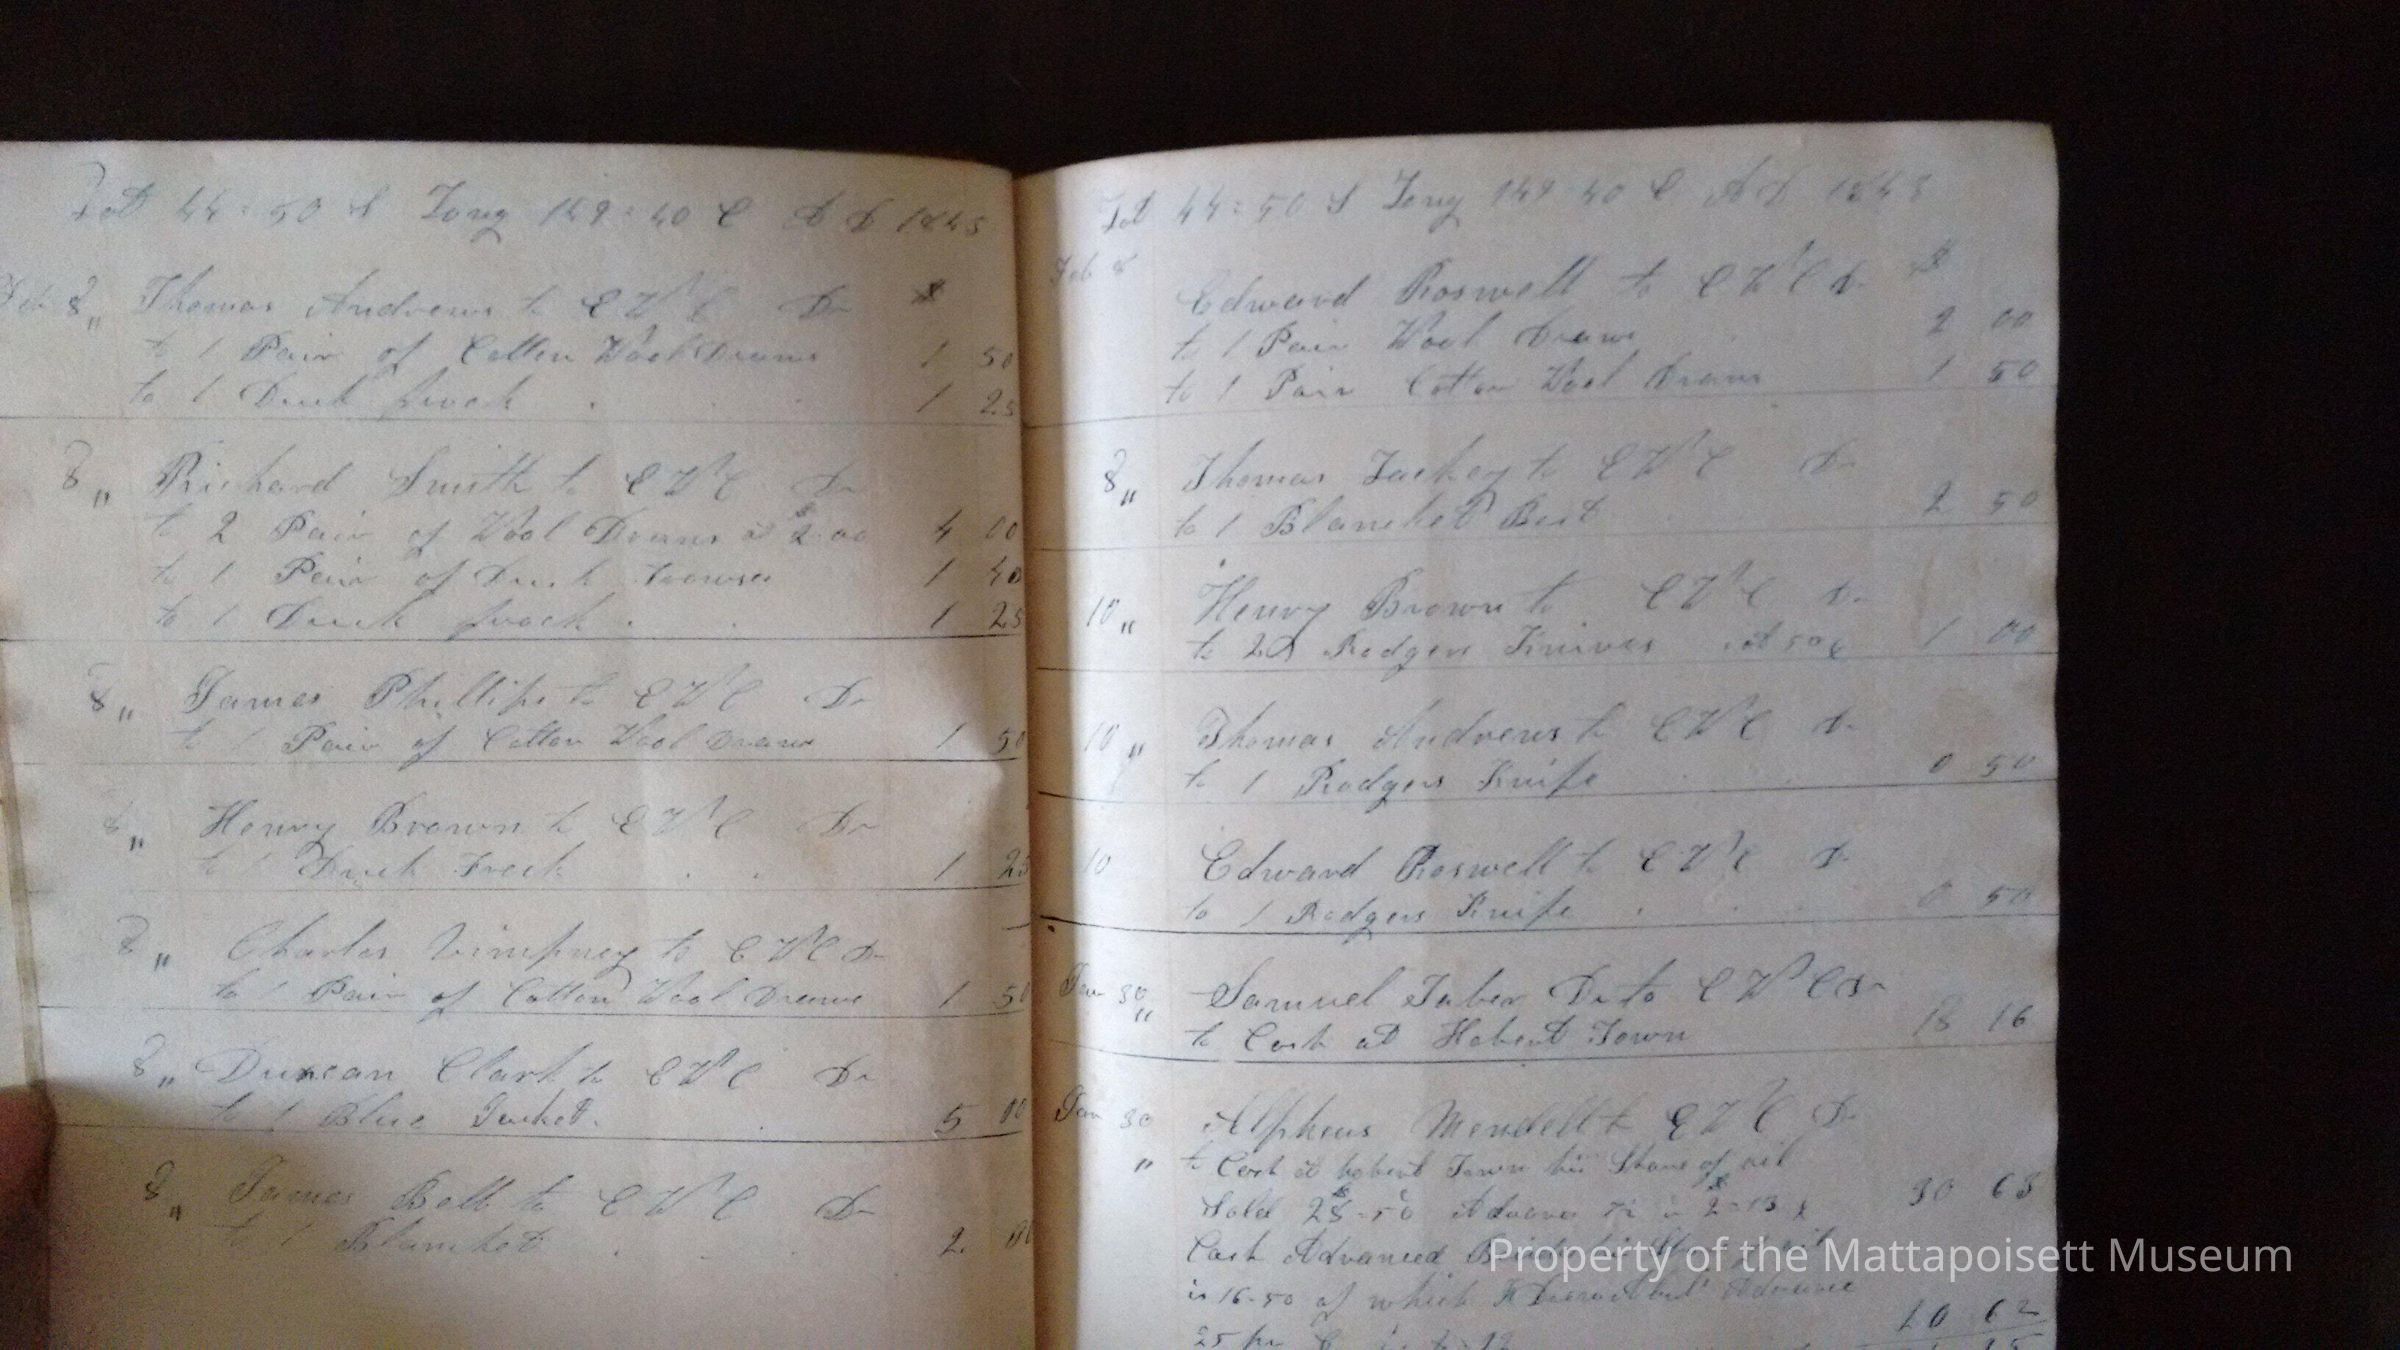 Lat 44=50 S Long 149=40 E A D 1845
Feb 8 " Thomas Andrews to E W C Dr $
to 1 Pair of Cotton Wool Draws 1 50
to 1 Duck frock 1 25
8 " Richard Smith to E W C Dr
to 2 Pair of Wool Draws a $2.00 4 00
to 1 Pair of Duck Trowses 1 40
to 1 Duck frock 1 25
8 " James Phillips to E W C Dr
to 1 Pair of Cotton Wool Draws 1 50
8 " Henry Brown to E W C Dr
to 1 Duck Frock 1 25
8 " Charles to E W C Dr
to 1 Pair of Cotton Wool Draws 1 50
8 " Duncan Clark to E W C Dr
to 1 Blue Jacket 5 00
8 " James Bell to E W C Dr
to 1 Blanket 2 00
Lat 44=50 S Long 149=40 E A D 1845
Feb 8 Edward Roswell to E W C Dr $
to 1 Pair Wool Draws 2 00
to 1 Pair Cotton Wool Draws 1 50
8 " Thomas to E W C Dr
to 1 Blancket Best 2 50
10 " Henry Brown to E W C Dr
to 2 Rodgers Knives at 50c 1 00
10 " Thomas Andrews to E W C Dr
to 1 Rodgers Knife 0 50
10 Edward Roswell to E W C Dr
to 1 Rodgers Knife 0 50
Jan 30 " Samuel Taber Dr to E W C Dr
to Cash at Hobert Town 18 16
Jan 30 Alpheus Mendell to E W C Dr
" to Cash at hobert Town his Share of oil
Sold 28-50 Advance 2-13 30 63
Cash Advanced
is 16-50 of which Advance
25 pr 10 62
Property of the Mattapoisett Museum